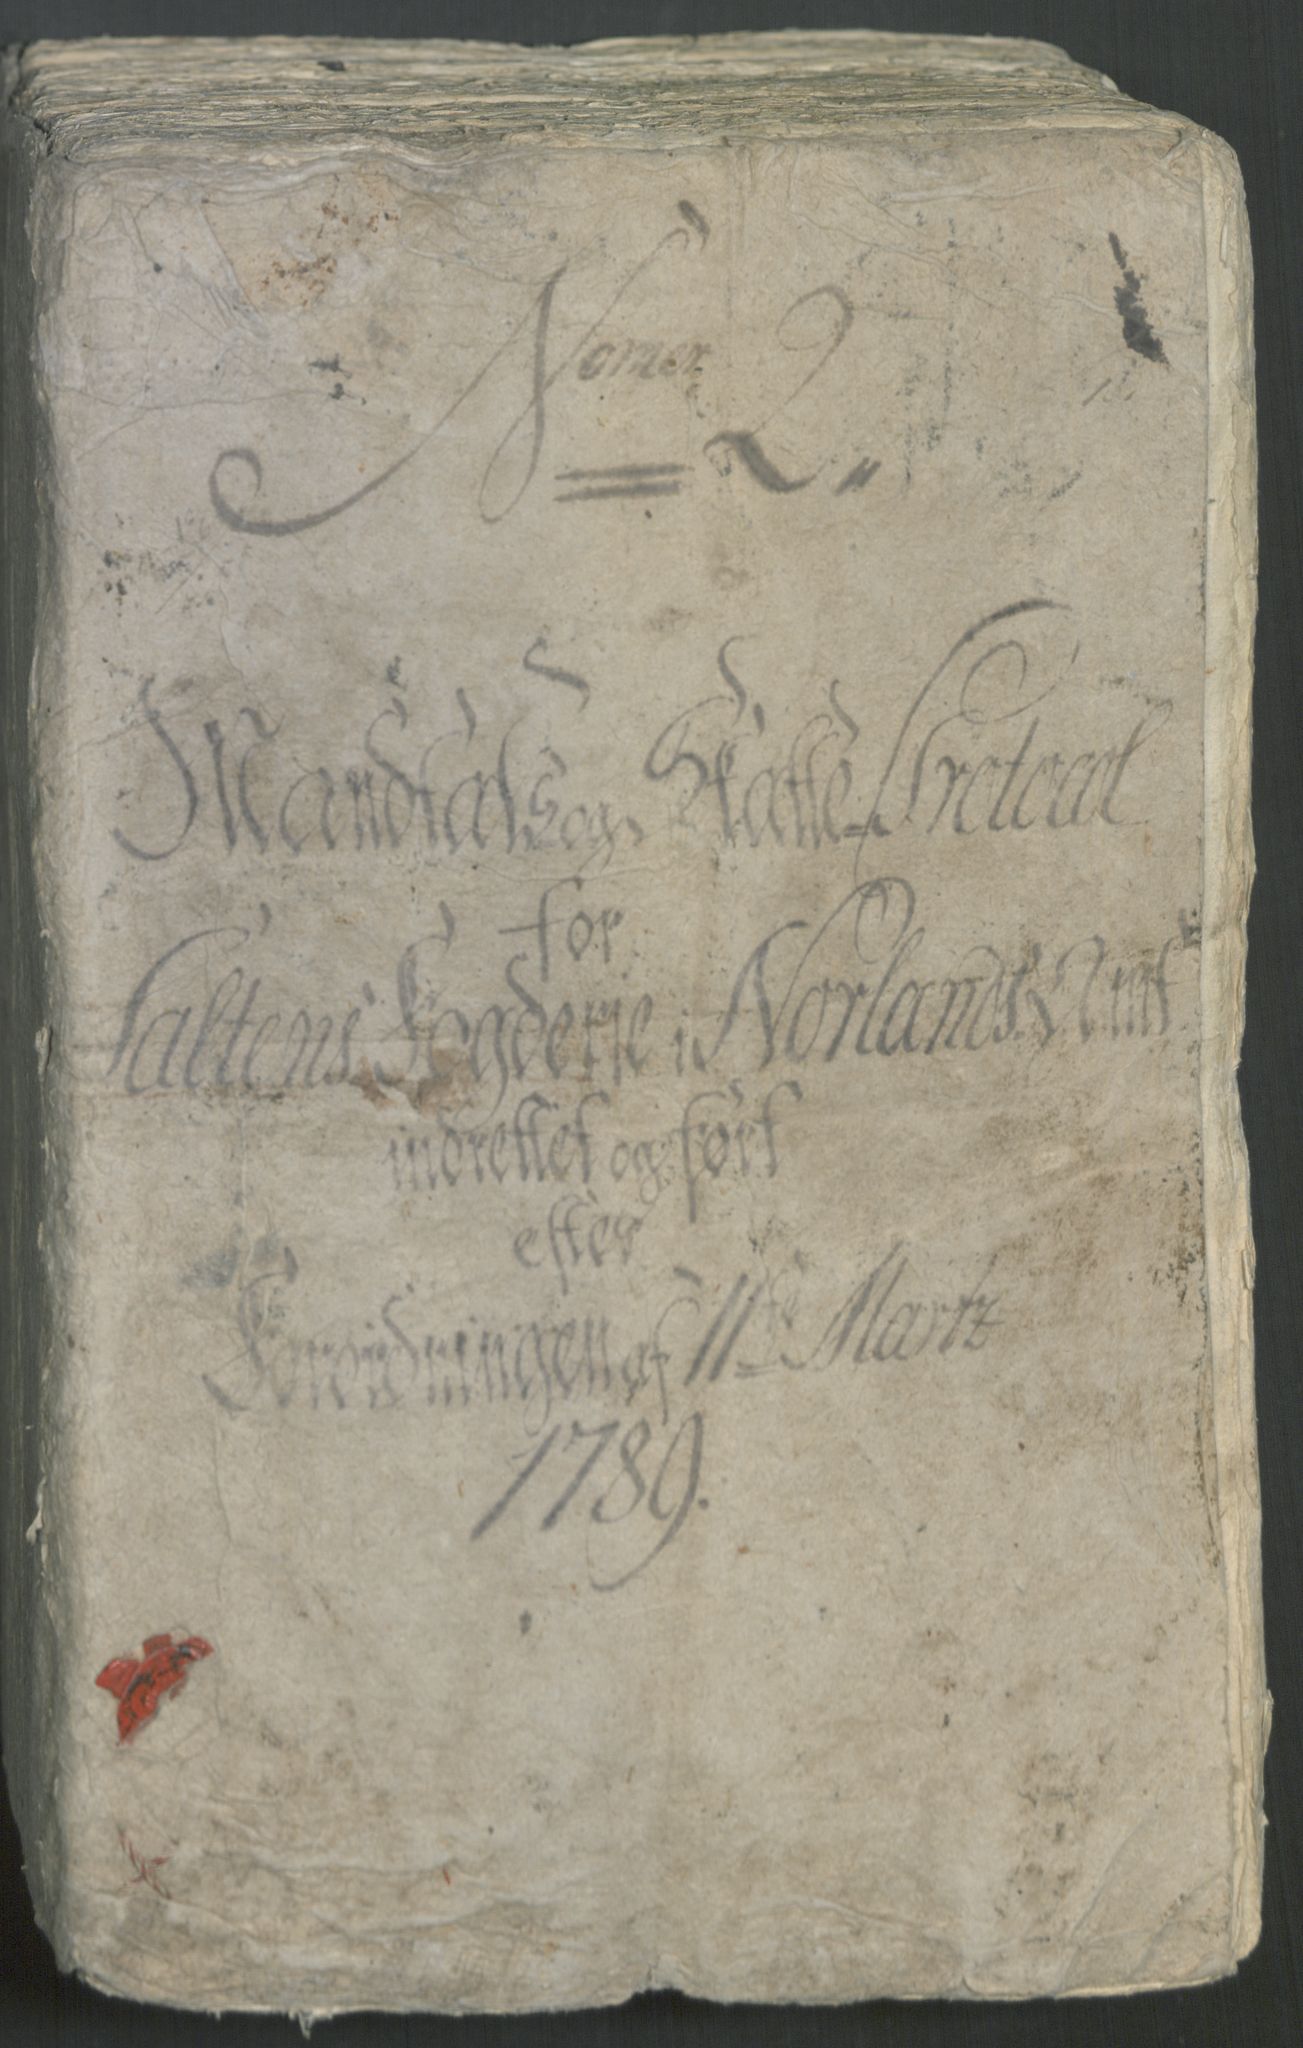 Nomer 2.
Mandtals og Skatte-Protocol
for
Saltens Fogderie i Norlands Amt
indrettet og ført
efter
Forordningen af 11te Martz
1789.